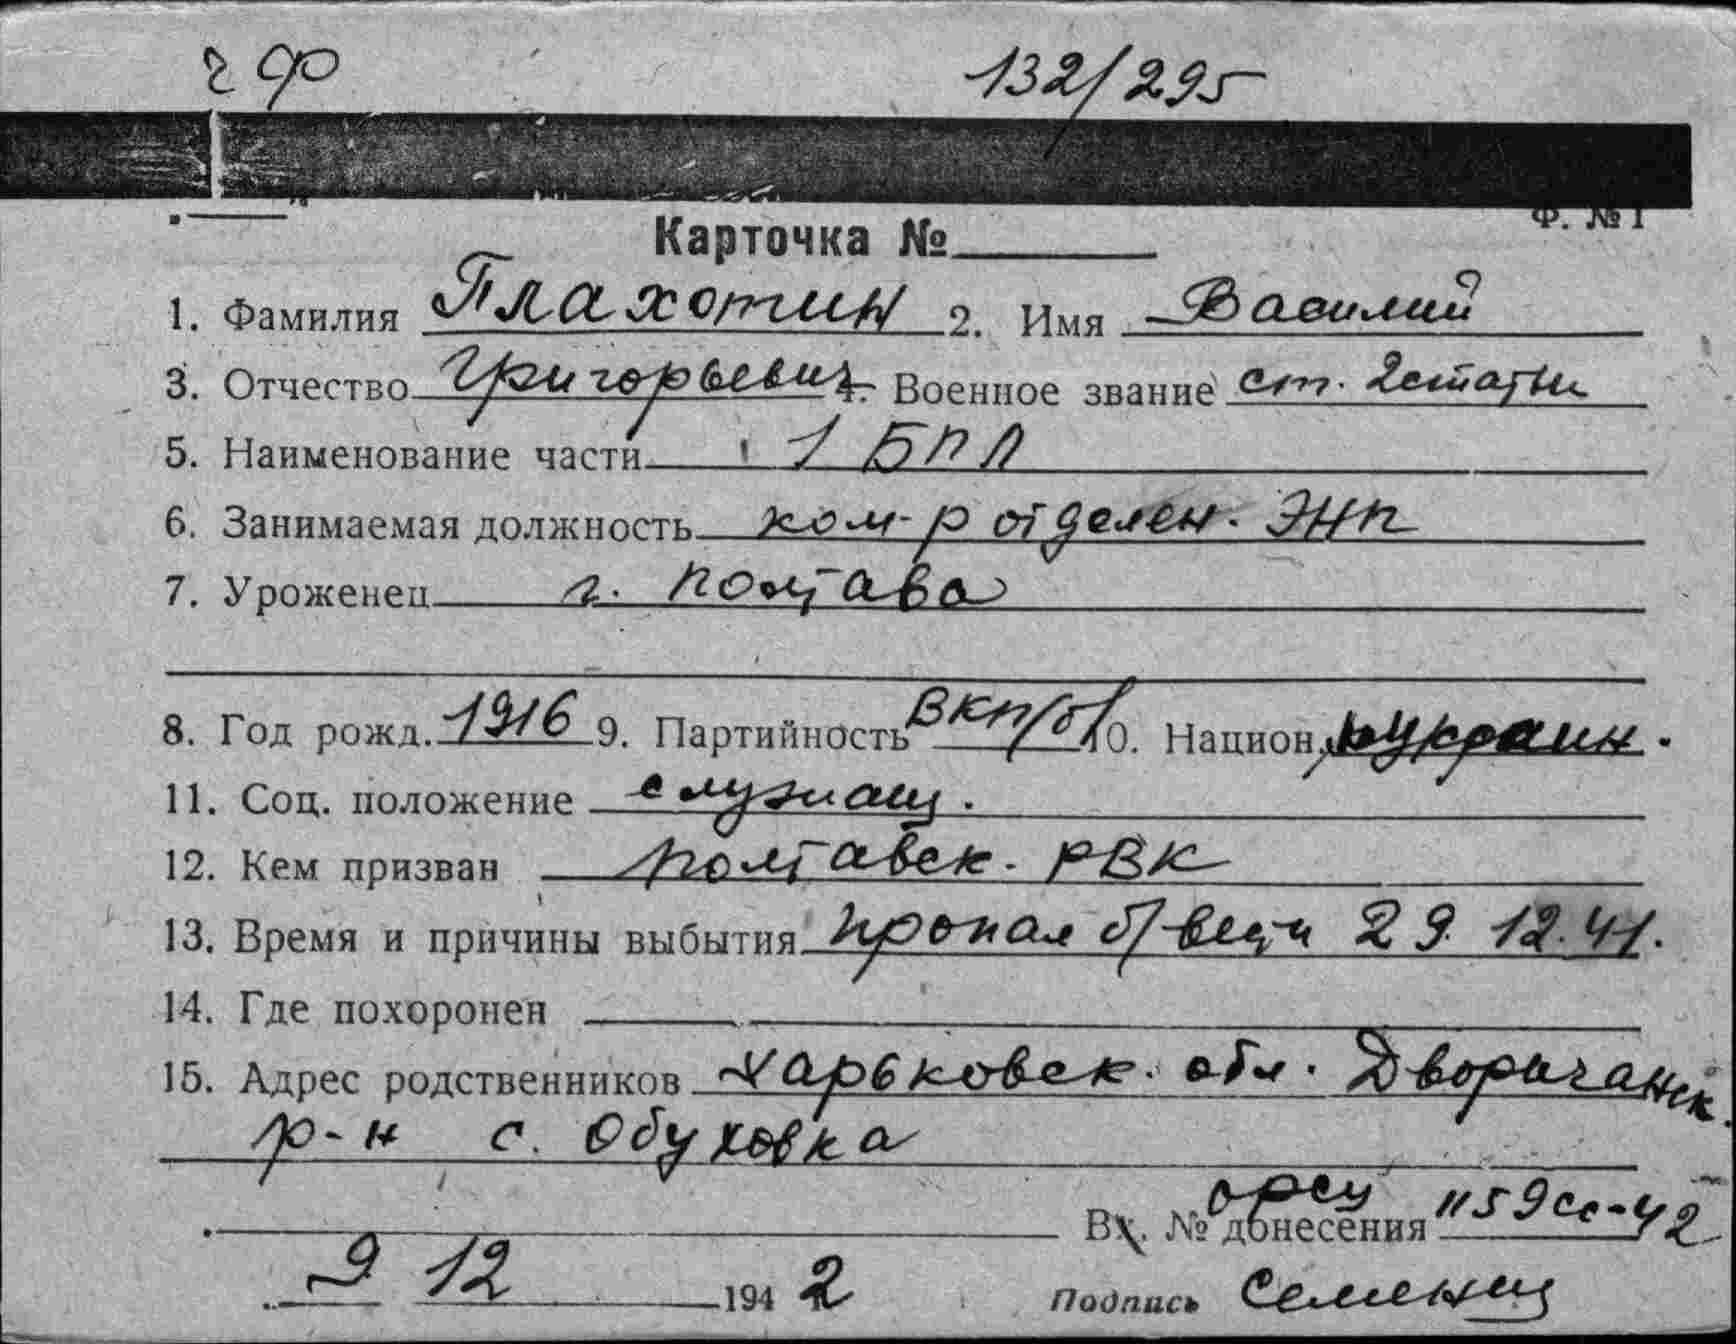 ч Ф 132/295
Ф. № 1
Карточка №
1. Фамилия Плахотин 2. Имя Василий
3. Отчество Григорьевич 4. Военное звание ст. 2 статьи
5. Наименование части 1 БПЛ
6. Занимаемая должность ком-р отделен. ЭНП
7. Уроженец г. Полтава
8. Год рожд. 1916 9. Партийность ВКП/б/ 10. Национ. украин.
11. Соц. положение служащ.
12. Кем призван Полтавск. РВК
13. Время и причины выбытия пропал б/вести 29.12.41.
14. Где похоронен
15. Адрес родственников Харьковск. обл. Дворичанск.
р-н с. Обуховка
Вх. № донесения 1159сс-42
9 12 1942 Подпись